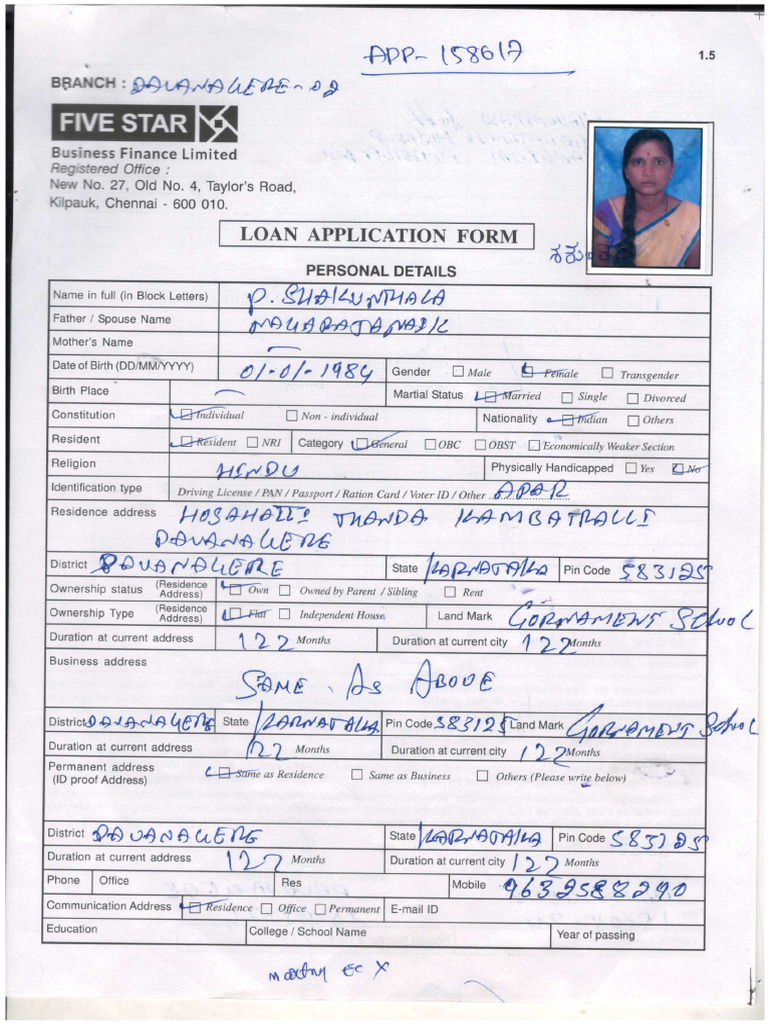 APP-158617
1.5
BRANCH : DAVANAGERE-02
FIVE STAR
Business Finance Limited
Registered Office :
New No. 27, Old No. 4, Taylor's Road,
Kilpauk, Chennai - 600 010.
LOAN APPLICATION FORM
PERSONAL DETAILS
Name in full (in Block Letters) P. SHAKUNTHALA
Father / Spouse Name MAHARAJANAIK
Mother's Name —
Date of Birth (DD/MM/YYYY) 01-01-1984 Gender Male Female Transgender
Birth Place — Martial Status Married Single Divorced
Constitution Individual Non - individual Nationality Indian Others
Resident Resident NRI Category General OBC OBST Economically Weaker Section
Religion HINDU Physically Handicapped Yes No
Identification type Driving License / PAN / Passport / Ration Card / Voter ID / Other ADAR
Residence address HOSAHATTI THANDA KAMBATRALLI
DAVANAGERE
District DAVANAGERE State KARNATAKA Pin Code 583125
Ownership status (Residence Address) Own Owned by Parent / Sibling Rent
Ownership Type (Residence Address) Flat Independent House Land Mark GORNAMENT SCHOOL
Duration at current address 122 Months Duration at current city 122 Months
Business address
SAME. AS ABOVE
District DAVANAGERE State KARNATAKA Pin Code 583125 Land Mark GORNAMENT SCHOOL
Duration at current address 122 Months Duration at current city 122 Months
Permanent address Same as Residence Same as Business Others (Please write below)
(ID proof Address)
District DAVANAGERE State KARNATAKA Pin Code 583125
Duration at current address 122 Months Duration at current city 122 Months
Phone Office Res Mobile 9632588290
Communication Address Residence Office Permanent E-mail ID
Education College / School Name Year of passing
EC X